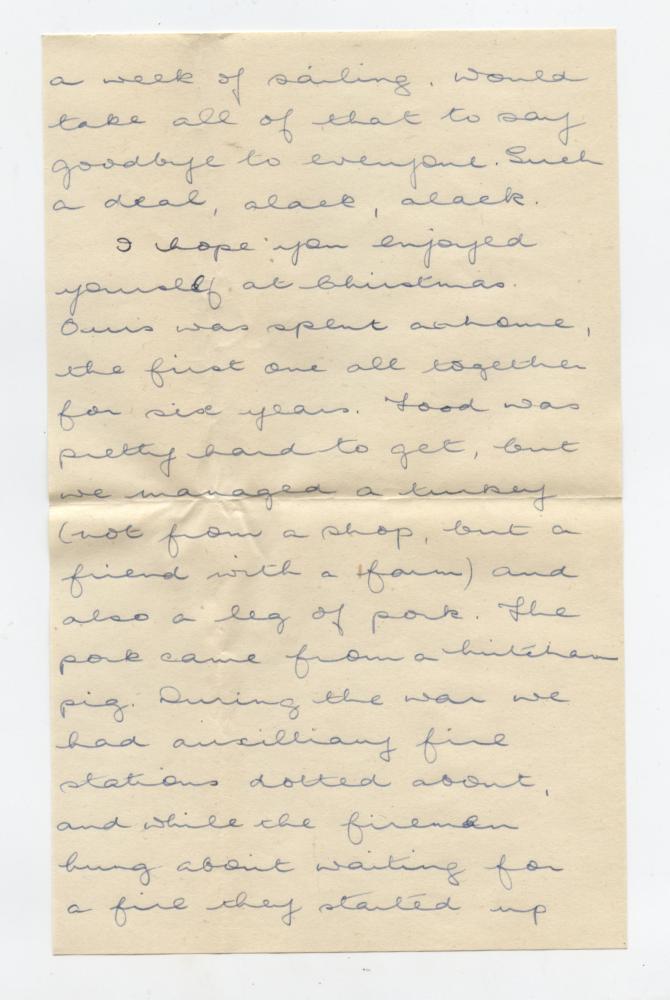 a week of sailing. Would
take all of that to say
goodbye to everyone. Such
a deal, alack, alack.
I hope you enjoyed
yourself at Christmas.
Ours was spent at home,
the first one all together
for six years. Food was
pretty hard to get, but
we managed a turkey
(not from a shop, but a
friend with a farm) and
also a leg of pork. The
pork came from a
pig. During the war we
had auxilliary fire
stations dotted about,
and while the firemen
hung about waiting for
a fire they started up